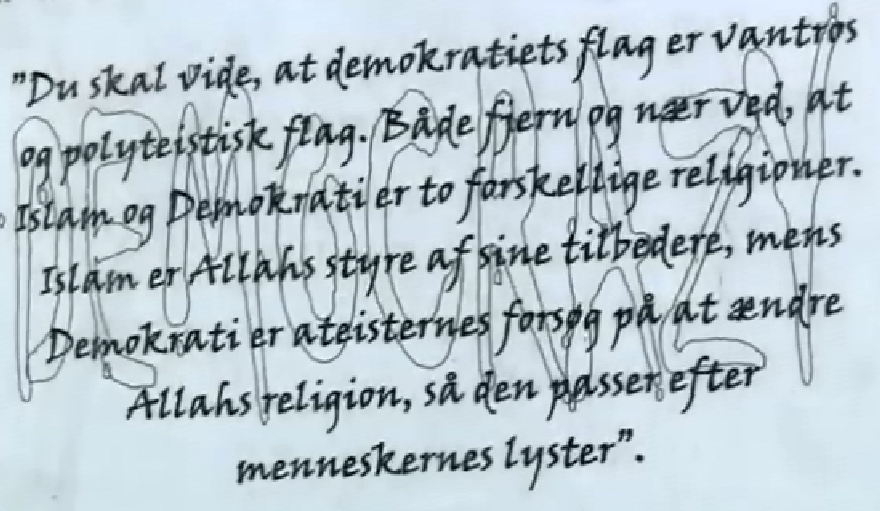 "Du skal vide, at demokratiets flag er vantros
og polyteistisk flag. Både fjern og nær ved, at
Islam og Demokrati er to forskellige religioner.
Islam er Allahs styre af sine tilbedere, mens
Demokrati er ateisternes forsøg på at ændre
Allahs religion, så den passer efter
menneskernes lyster".